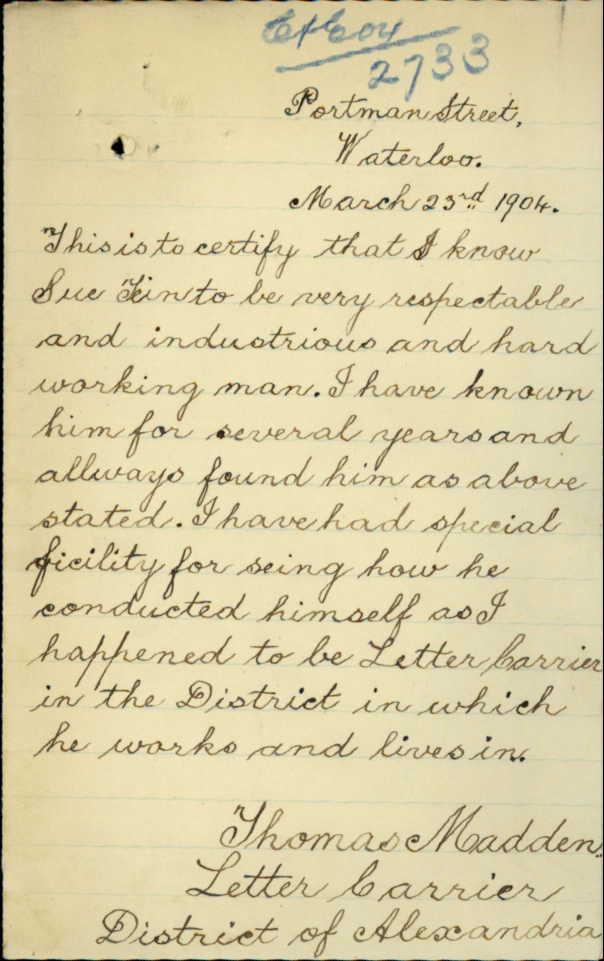 2733
Portman Street,
Waterloo.
March 23rd 1904.
This is to certify that I know
Sue Tin to be very respectable
and industrious and hard
working man. I have known
him for several years and
allways found him as above
stated. I have had special
ficility for seing how he
conducted himself as I
happened to be Letter Carrier
in the District in which
he works and lives in.
Thomas Madden.
Letter Carrier
District of Alexandria